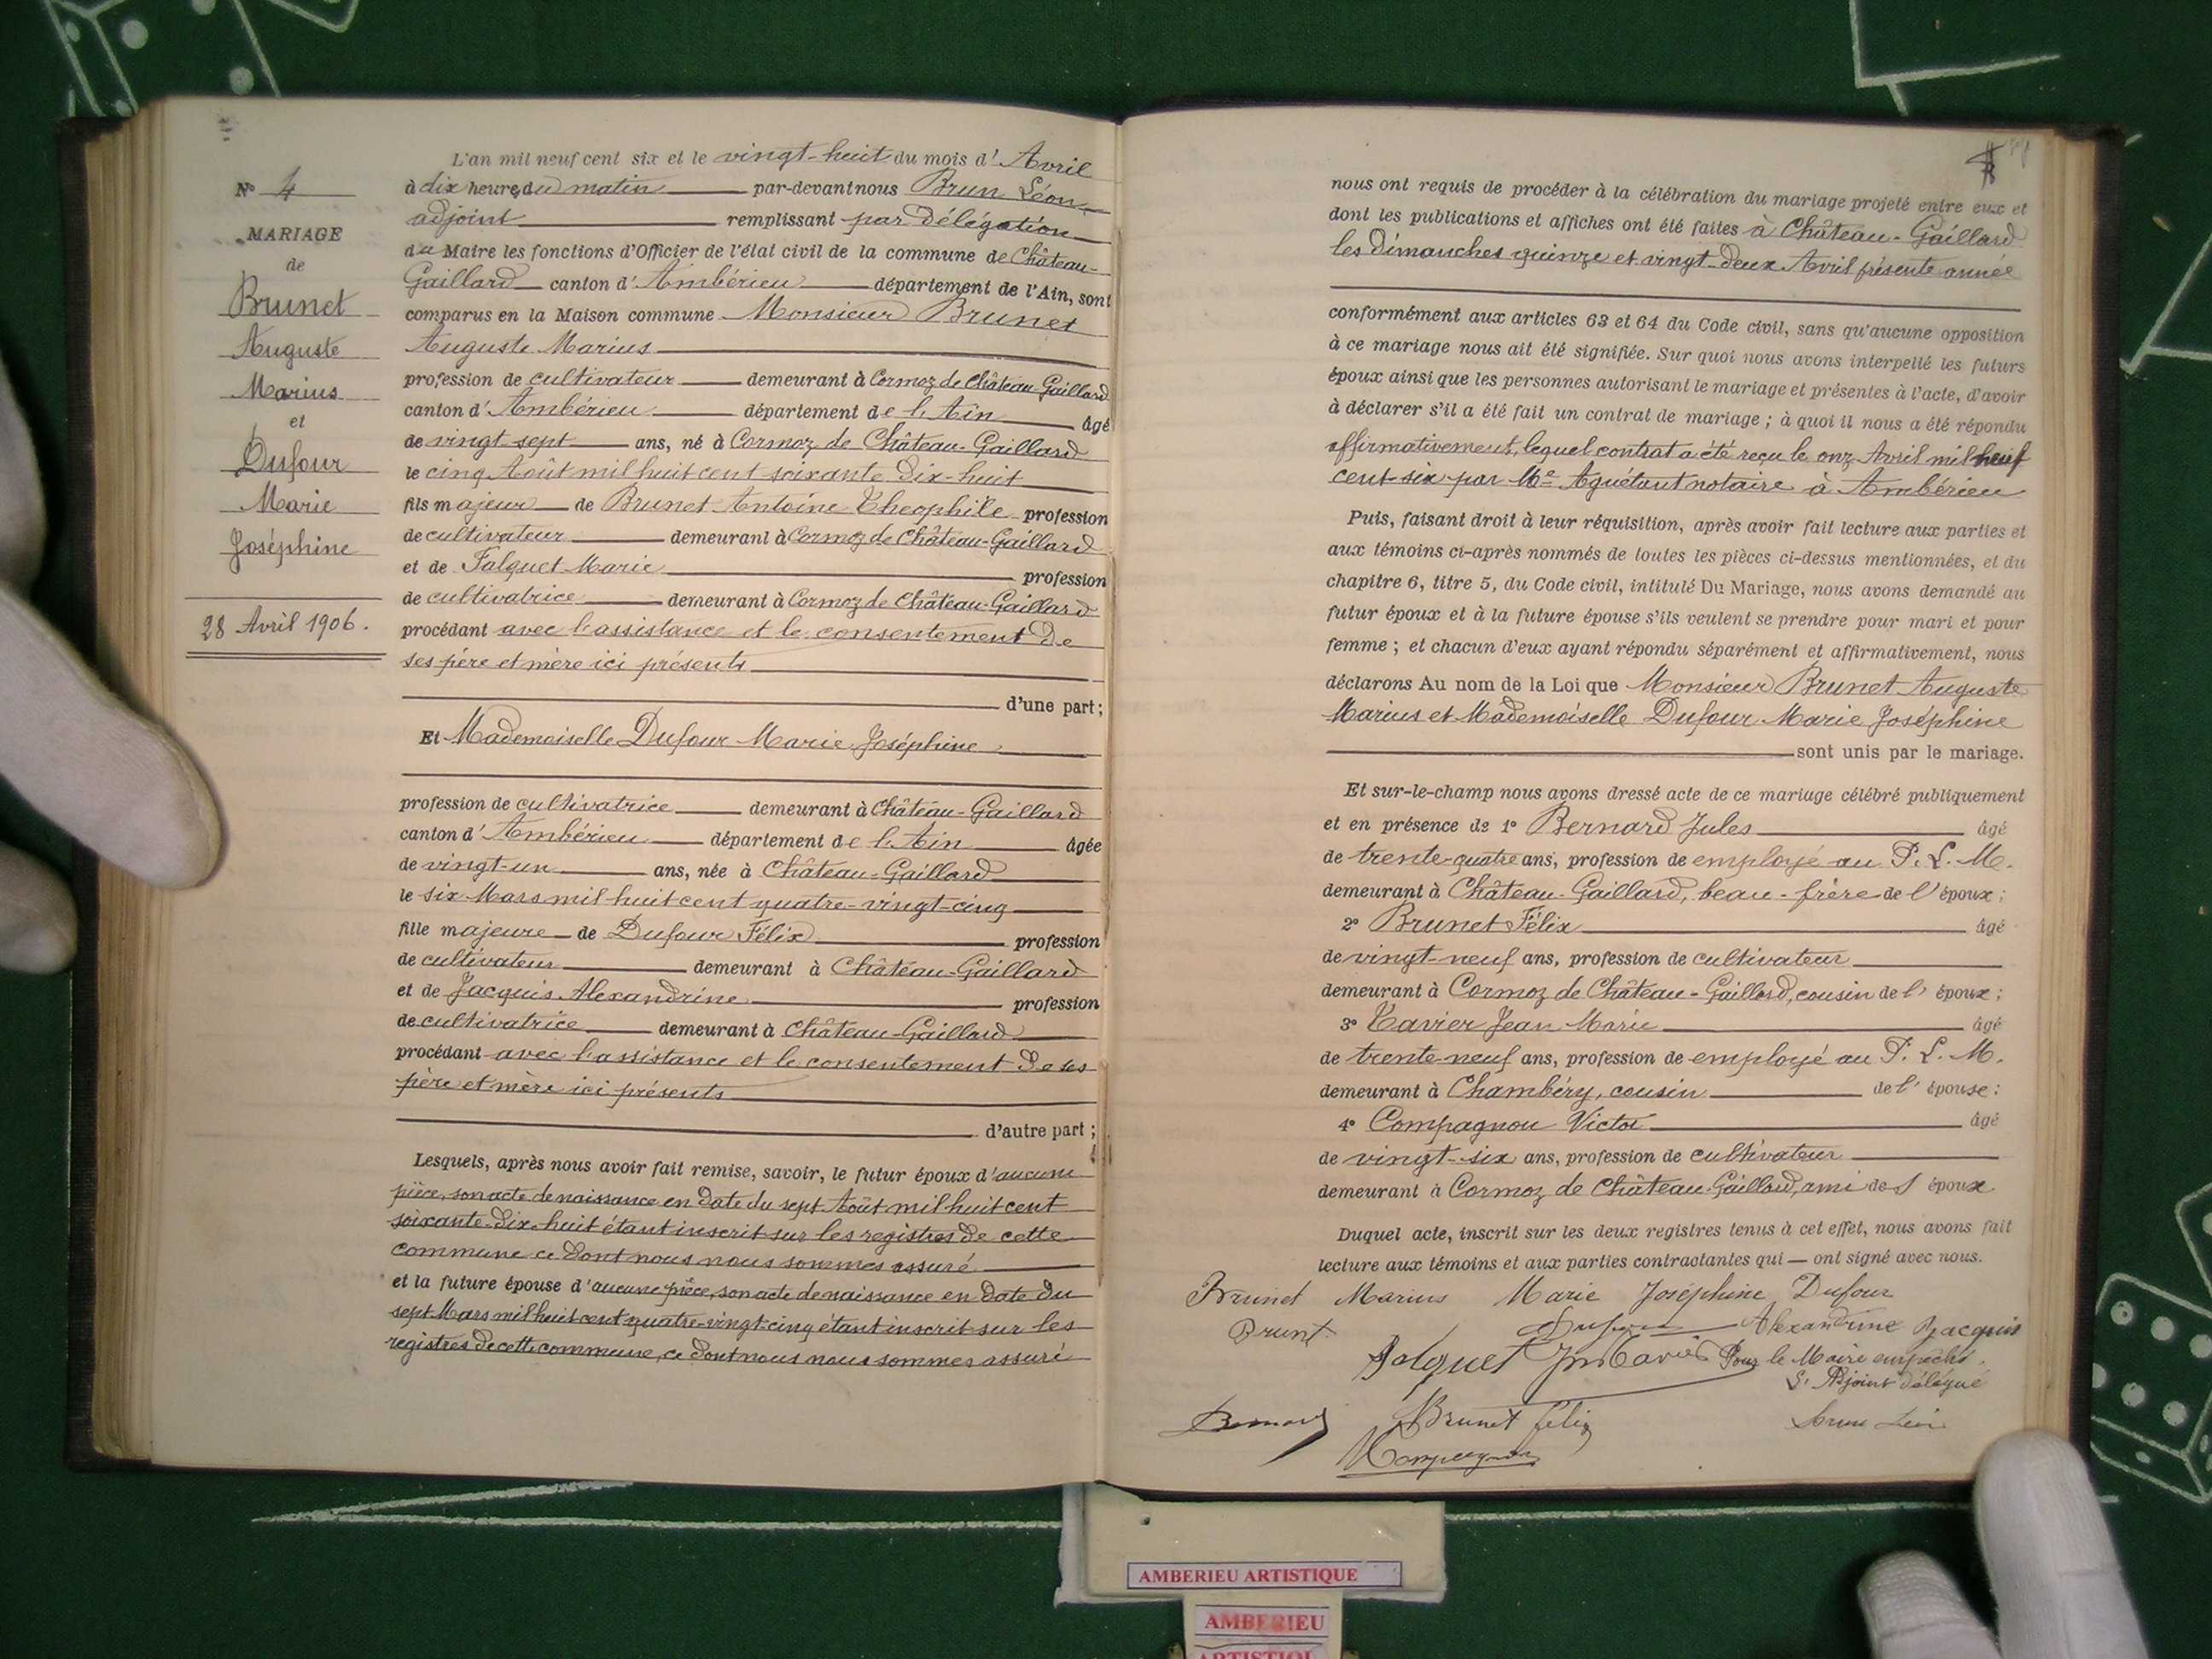 N° 4
MARIAGE
de
Brunet
Auguste
Marius
et
Dufour
Marie
Joséphine
28 Avril 1906.
L'an mil neuf cent six et le vingt-huit du mois d'Avril
à dix heures du matin par-devant nous Brun Léon
adjoint remplissant par délégation
du Maire les fonctions d'Officier de l'état civil de la commune de Château-
Gaillard canton d'Ambérieu département de l'Ain, sont
comparus en la Maison commune Monsieur Brunet
Auguste Marius
profession de cultivateur demeurant à Cormoz de Château-Gaillard
canton d'Ambérieu département de l'Ain âgé
de vingt-sept ans, né à Cormoz de Château-Gaillard
le cinq Août mil huit cent soixante-dix-huit
fils majeur de Brunet Antoine Théophile profession
de cultivateur demeurant à Cormoz de Château-Gaillard
et de Falquet Marie profession
de cultivatrice demeurant à Cormoz de Château-Gaillard
procédant avec l'assistance et le consentement de
ses père et mère ici présents
d'une part;
Et Mademoiselle Dufour Marie Joséphine
profession de cultivatrice demeurant à Château-Gaillard
canton d'Ambérieu département de l'Ain âgée
de vingt-un ans, née à Château-Gaillard
le six Mars mil huit cent quatre-vingt-cinq
fille majeure de Dufour Félix profession
de cultivateur demeurant à Château-Gaillard
et de Jacquis Alexandrine profession
de cultivatrice demeurant à Château-Gaillard
procédant avec l'assistance et le consentement de ses
père et mère ici présents
d'autre part;
Lesquels, après nous avoir fait remise, savoir, le futur époux d'aucune
pièce, son acte de naissance en date du sept Août mil huit cent
soixante-dix-huit étant inscrit sur les registres de cette
commune ce dont nous nous sommes assuré
et la future épouse d'aucune pièce, son acte de naissance en date du
sept Mars mil huit cent quatre-vingt-cinq étant inscrit sur les
registres de cette commune, ce dont nous nous sommes assuré
nous ont requis de procéder à la célébration du mariage projeté entre eux et
dont les publications et affiches ont été faites à Château-Gaillard
les dimanches quinze et vingt-deux Avril présente année
conformément aux articles 63 et 64 du Code civil, sans qu'aucune opposition
à ce mariage nous ait été signifiée. Sur quoi nous avons interpellé les futurs
époux ainsi que les personnes autorisant le mariage et présentes à l'acte, d'avoir
à déclarer s'il a été fait un contrat de mariage; à quoi il nous a été répondu
affirmativement, lequel contrat a été reçu le onz Avril mil neuf
cent-six par Me Aguétant notaire à Ambérieu
Puis, faisant droit à leur réquisition, après avoir fait lecture aux parties et
aux témoins ci-après nommés de toutes les pièces ci-dessus mentionnées, et du
chapitre 6, titre 5, du Code civil, intitulé Du Mariage, nous avons demandé au
futur époux et à la future épouse s'ils veulent se prendre pour mari et pour
femme; et chacun d'eux ayant répondu séparément et affirmativement, nous
déclarons Au nom de la Loi que Monsieur Brunet Auguste
Marius et Mademoiselle Dufour Marie Joséphine
sont unis par le mariage.
Et sur-le-champ nous avons dressé acte de ce mariage célébré publiquement
et en présence de 1° Bernard Jules âgé
de trente-quatre ans, profession de employé au P. L. M.
demeurant à Château-Gaillard, beau-frère de l'époux;
2° Brunet Félix âgé
de vingt-neuf ans, profession de cultivateur
demeurant à Cormoz de Château-Gaillard, cousin de l'époux;
3° Xavier Jean Marie âgé
de trente-neuf ans, profession de employé au P. L. M.
demeurant à Chambéry, cousin de l'épouse:
4° Compagnon Victor âgé
de vingt-six ans, profession de cultivateur
demeurant à Cormoz de Château-Gaillard, ami de l'époux
Duquel acte, inscrit sur les deux registres tenus à cet effet, nous avons fait
lecture aux témoins et aux parties contractantes qui — ont signé avec nous.
Brunet Marius Marie Joséphine Dufour
Brunt Dufour Alexandrine Jacquis
Falquet Pour le Maire empêché.
L'Adjoint délégué
Bernard Brunet félix Brun Léon
Compagnon
AMBERIEU ARTISTIQUE
AMBERIEU
ARTISTIQUE